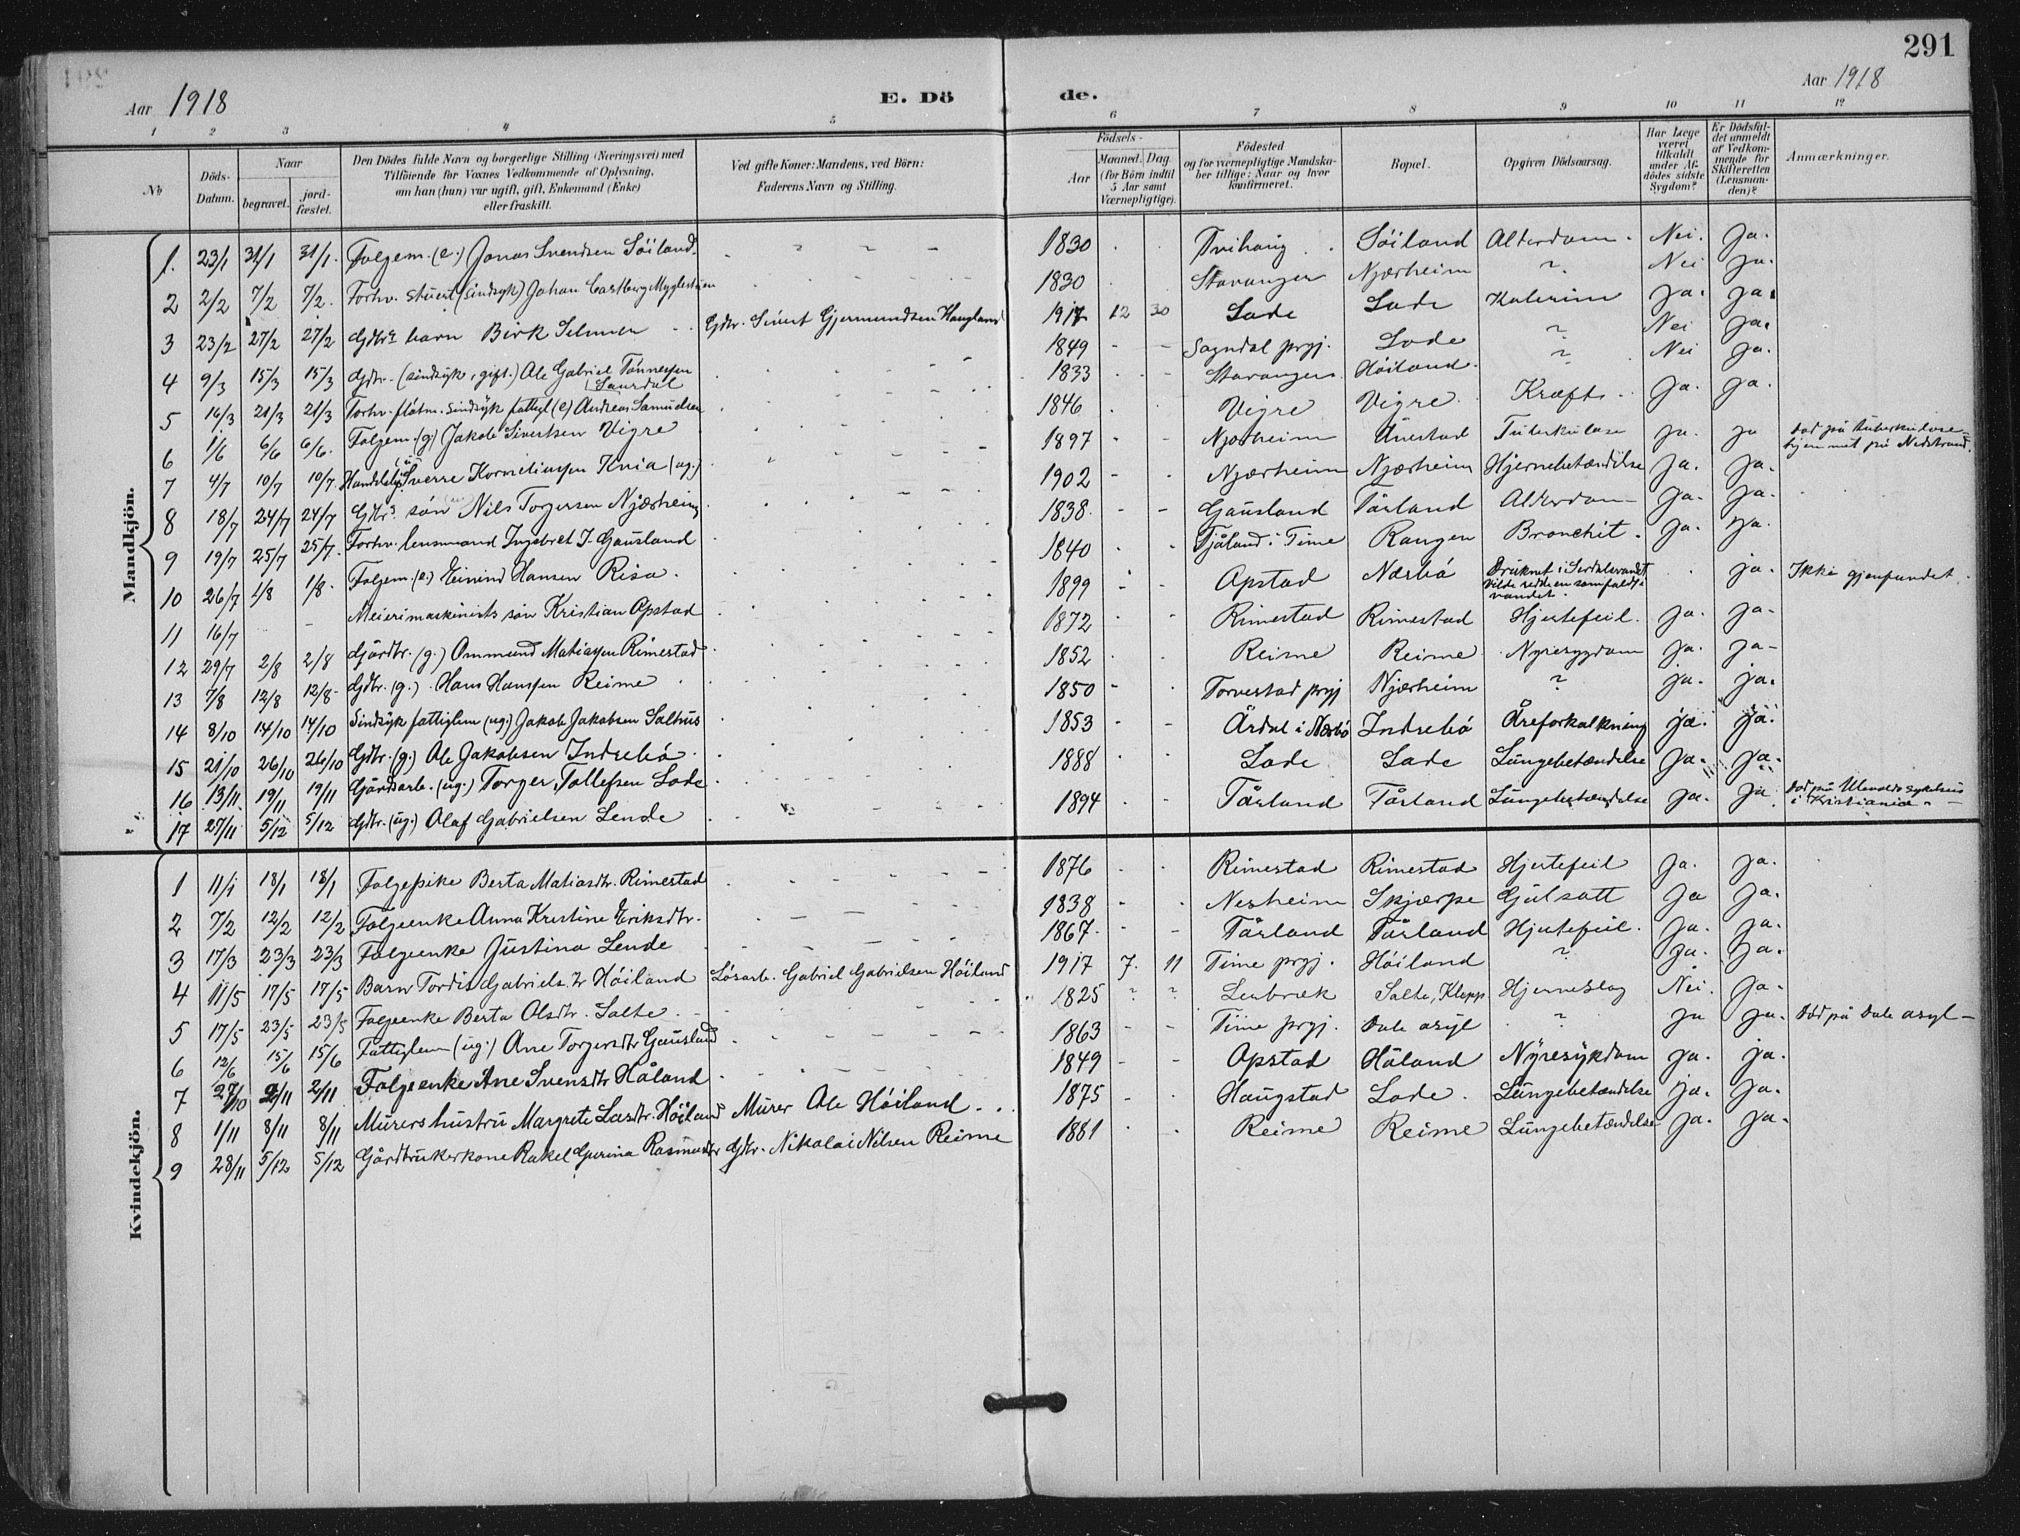 291
Aar 1918 E. Dö de. Aar 1918
1 2 3 4 5 6 7 8 9 10 11 12
No
Döds-Datum.
Naar
begravet.
jord-fæstet.
Den Dödes fulde Navn og borgerlige Stilling (Næringsvei) med
Tilföiende for Voxnes Vedkommende af Oplysning,
om han (hun) var ugift, gift, Enkemand (Enke)
eller fraskilt.
Ved gifte Koner: Mandens, ved Börn:
Faderens Navn og Stilling.
Födsels-
Aar
Maaned. Dag.
(for Börn indtil
5 Aar samt
Værnepligtige).
Födested
og for værnepligtige Mandska-
ber tillige: Naar og hvor
konfirmeret.
Bopæl.
Opgiven Dödsaarsag.
Har Læge
været
tilkaldt
under Af-
dödes sidste
Sygdom?
Er Dödsfal-
det anmeldt
af Vedkom-
mende for
Skifteretten
(Lensman-
den)?
Anmærkninger.
Mandkjön.
1. 23/1 31/1 31/1. Folgem. (e.) Jonas Svendsen Söiland. 1830 Tvihaug Söiland Alderdom. Nei. Ja.
2 2/2 7/2 7/2. Forhv. stuert (sindsyk) Johan Castberg Myglestuen 1830 Stavanger Njærheim ? Nei Ja.
3 23/2 27/2 27/2 Gdbrs barn Birk Selmer Gdbr. Sivert Gjermundsen Haugland 1917 12 30 Lode Lode Kolerine Ja. Ja.
4 9/3 15/3 15/3 Gdbr. (sindsyk, gift.) Ole Gabriel Tönnessen 1849 Sogndal prgj. Lode ? Nei Ja.
5 16/3 21/3 21/3 Forhv. sindsyk fattigl (e) Andreas Samuelsen 1833 Stavanger Höiland. ? Nei Ja.
6 1/6 6/6 6/6. Folgem. (g) Jakob Sivertsen Vigre 1846 Vigre Vigre Kræft Ja. Ja.
7 4/7 10/7 10/7 Sverre Korneliussen Kvia (ug.) 1897 Njærheim Auestad Tuberkulose Ja. Ja Död på tuberkulose-
hjemmet på Nedstrand.
8 18/7 24/7 24/7 Gdbrs sön Nils Torgersen Njærheim 1902 Njærheim Njærheim Hjernebetændelse Ja. Ja.
9 19/7 25/7 25/7. Forhv. lensmand Ingebret J. Gausland 1838 Gausland Tårland Alderdom Ja. Ja.
10 26/7 1/8 1/8. Folgem. (e.) Eivind Hansen Risa. 1840 Tjåland i Time Rangen Bronchit. Ja. Ja.
11 16/7 Meierimaskinists sön Kristian Opstad 1899 Opstad Nærbö Druknet i Sirdalsvandet
vilde redde en som faldt i
vandet. ja. Ikke gjenfundet.
12 29/7 2/8 2/8 Gårdbr. (g.) Ommund Matiassen Rimestad 1872 Rimestad Rimestad Hjertefeil. Ja. Ja
13 7/8 12/8 12/8 Gdbr. (g.) Hans Hanssen Reime 1852 Reime Reime Nyresygdom Ja. Ja
14 8/10 14/10 14/10 Sindsyk fattiglem (ug.) Jakob Jakobsen Salthus 1850 Torvestad prgj Njærheim ? ja. ja.
15 21/10 26/10 26/10 Gdbr. (g.) Ole Jakobsen Indrebö. 1853 Årdal i Nærbö Indrebö Åreforkalkning ja. ja.
16 13/11 19/11 19/11 Gårdsarb. (ug.) Torger Tollefsen Lode 1888 Lode Lode Lungebetændelse Ja. Ja.
17 27/11 5/12 5/12 Gdbr. (ug.) Olaf Gabrielsen Lende 1894 Tårland Tårland Lungebetændelse Ja. Ja Död på Ulevold sykehus
i Kristiania.
Kvindekjön.
1 11/1 18/1 18/1 Folgepike Berta Matiasdtr. Rimestad 1876 Rimestad Rimestad Hjertefeil Ja. Ja.
2 7/2 12/2 12/2 Folgeenke Anna Kristine Eriksdtr. 1838 Nesheim Skjærpe Gulsott Ja Ja.
3 17/3 23/3 23/3 Folgeenke Justina Lende 1867. Tårland Tårland Hjertefeil. Ja. Ja.
4 11/5 17/5 17/5 Barn Tordis Gabriels. tr Höiland Lösarb. Gabriel Gabrielsen Höiland 1917 7. 11 Time prgj. Höiland ? Ja. Ja.
5 17/5 23/5 23/5 Folgeenke Berta Olsdtr. Salte. 1825 ? ? Lerbræk Salte, Klepp Hjerneslag Nei. Ja.
6 12/6 15/6 15/6 Fattiglem (ug.) Ane Torgersdtr Gausland 1863 Time prgj. Dale asyl ? Ja Ja. Död på Dale asyl
7 27/10 2/11 2/11 Folgeenke Ane Svensdtr Håland 1849 Opstad Håland Nyresykdom Ja. ja.
8 1/11 8/11 8/11 Murers hustru Margrete Lasdtr. Höiland Murer Ole Höiland 1875 Haugstad Lode. Lungebetændelse ja. Ja.
9 28/11 5/12 5/12 Gårdbrukerkone Rakel Gurina Rasmusdtr Gdbr. Nikolai Nilsen Reime 1881 Reime Reime Lungebetændelse Ja. Ja.